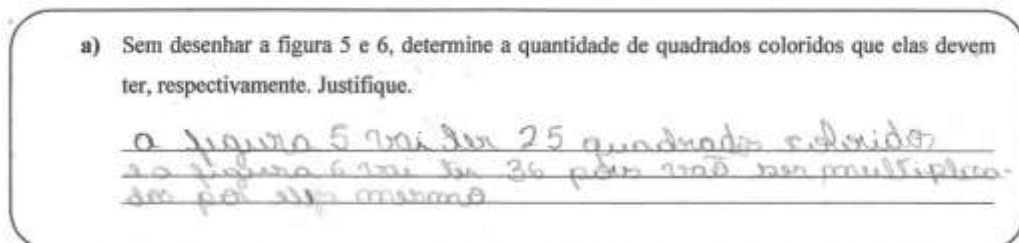 a) Sem desenhar a figura 5 e 6, determine a quantidade de quadrados coloridos que elas devem
ter, respectivamente. Justifique.
a figura 5 vai ter 25 quadrados coloridos
e a figura 6 vai ter 36 pois vaõ ser multiplica-
dos por eles mesmo